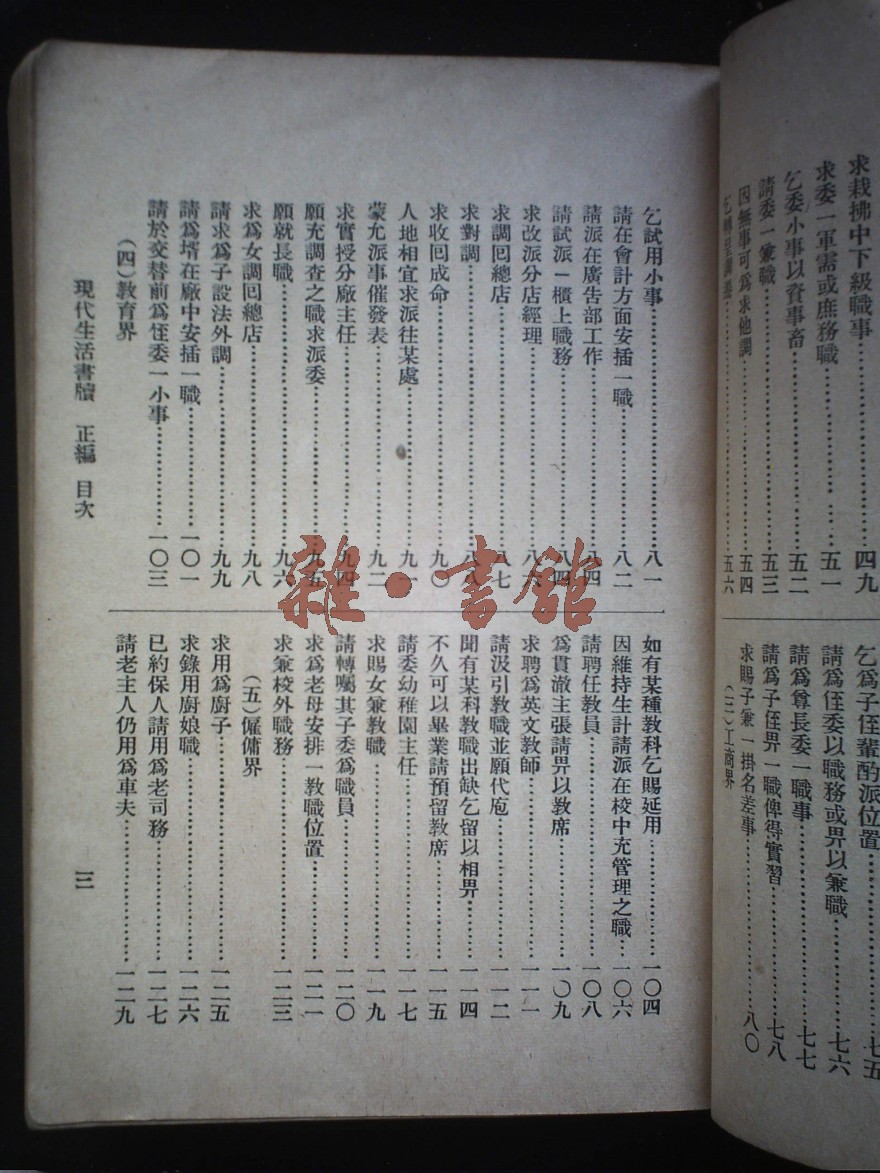 求栽拂中下級職事…………四九
求委一軍需或庶務職…………五一
乞委小事以資事畜…………五二
請委一兼職…………五三
因無事可爲求他調…………五四
乞爲子侄輩酌派位置…………七五
請爲侄委以職務或畀以兼職…………七六
請爲尊長委一職事…………七七
請爲子侄畀一職俾得實習…………七八
求賜子兼一掛名差事…………八〇
(三)工商界
乞試用小事…………八一
請在會計方面安插一職…………八二
請派在廣告部工作…………八四
請試派一櫃上職務…………八四
求改派分店經理…………八六
求調回總店…………八七
求對調…………八八
求收回成命…………九〇
人地相宜求派往某處…………九一
蒙允派事催發表…………九二
求實授分廠主任…………九四
願充調查之職求派委…………九五
願就長職…………九六
求爲女調回總店…………九八
請求爲子設法外調…………九九
請爲壻在廠中安插一職…………一〇一
請於交替前爲侄委一小事…………一〇三
(四)教育界
如有某種教科乞賜延用…………一〇四
因維持生計請派在校中充管理之職…一〇六
請聘任教員…………一〇八
爲貫澈主張請畀以教席…………一〇九
求聘爲英文教師…………一一一
請汲引教職並願代庖…………一一二
聞有某科教職出缺乞留以相畀…………一一四
不久可以畢業請預留教席…………一一五
請委幼稚園主任…………一一七
求賜女兼教職…………一一九
請轉囑其子委爲職員…………一二〇
求爲老母安排一教職位置…………一二一
求兼校外職務…………一二三
(五)僱傭界
求用爲廚子…………一二五
求錄用廚娘職…………一二六
已約保人請用爲老司務…………一二七
請老主人仍用爲車夫…………一二九
現代生活書牘 正編 目次
三
雜·書館